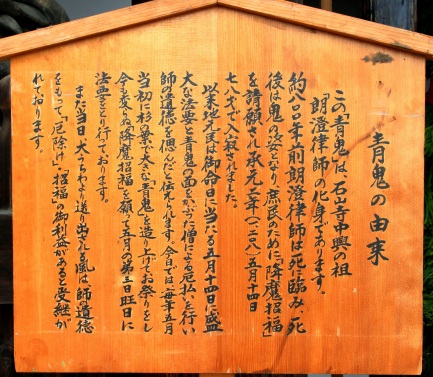 青鬼の由来
この「青鬼」は、石山寺中興の祖
「朗澄律師」の化身であります。
約八〇〇年前朗澄律師は死に臨み、死
後は鬼の姿となり庶民のために「降魔招福」
を請願され承元二年（一二〇八）五月十四日
七八才で入寂されました。
以来地元民は御命日に当たる五月十四日に盛
大な法要と青鬼の面をかぶった僧による厄払いを行い
師の遺徳を偲んだと伝えられます。今日では、毎年五月
当初に杉の葉で大きな青鬼を造り上げてお祭りをし
今も変らぬ「降魔招福」を願って五月の第三日曜日に
法要をとり行っております。
また当日大うちわより送り出される風は、師の遺徳
をもって「厄除け」「招福」の御利益があると受継が
れております。